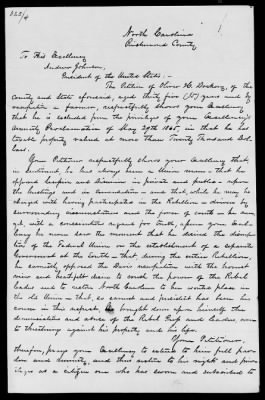 North Carolina
Richmond County
To His Excellency
Andrew Johnson,
President of the United States:
The Petition of Oliver H. Dockery, of the
county and State aforesaid, aged thirty five (35) years and by
occupation a farmer, respectfully shows your Excellency
that he is excluded from the privileges of your Excellency's
Amnesty Proclamation of May 29th 1865, in that he has
taxable property valued at more than Twenty Thousand Dol-
lars.
Your Petitioner respectfully shows your Excellency that,
in sentiment he has always been a Union man - that he
opposed Secession and disunion in private and public - before
the hustings and in Convention - and that, while he may be
charged with having participated in the Rebellion - driven by
surrounding circumstances and the power of the - he can
yet, with a conscientious regard for truth, assure your Excel-
lency he never saw the moment that he desired the disrup-
tion of the Federal Union or the establishment of a separate
Government at the South - that, during the entire Rebellion,
he earnestly opposed the Davis usurpation with the earnest
and heartfelt desire to crush the power of the Rebel
leaders and to restore North Carolina to her wonted place in
the old Union - that, so earnest and persistent has been his
course in this respect, he brought down upon himself the
denunciation and abuse of the Rebel Press and leaders, even
to threatening against his property and his life.
Your Petitioner,
therefore, prays your Excellency to extend to him full par-
don and amnesty, and thus restore to his rights and privi-
leges as a citizen one who has sworn and subscribed to